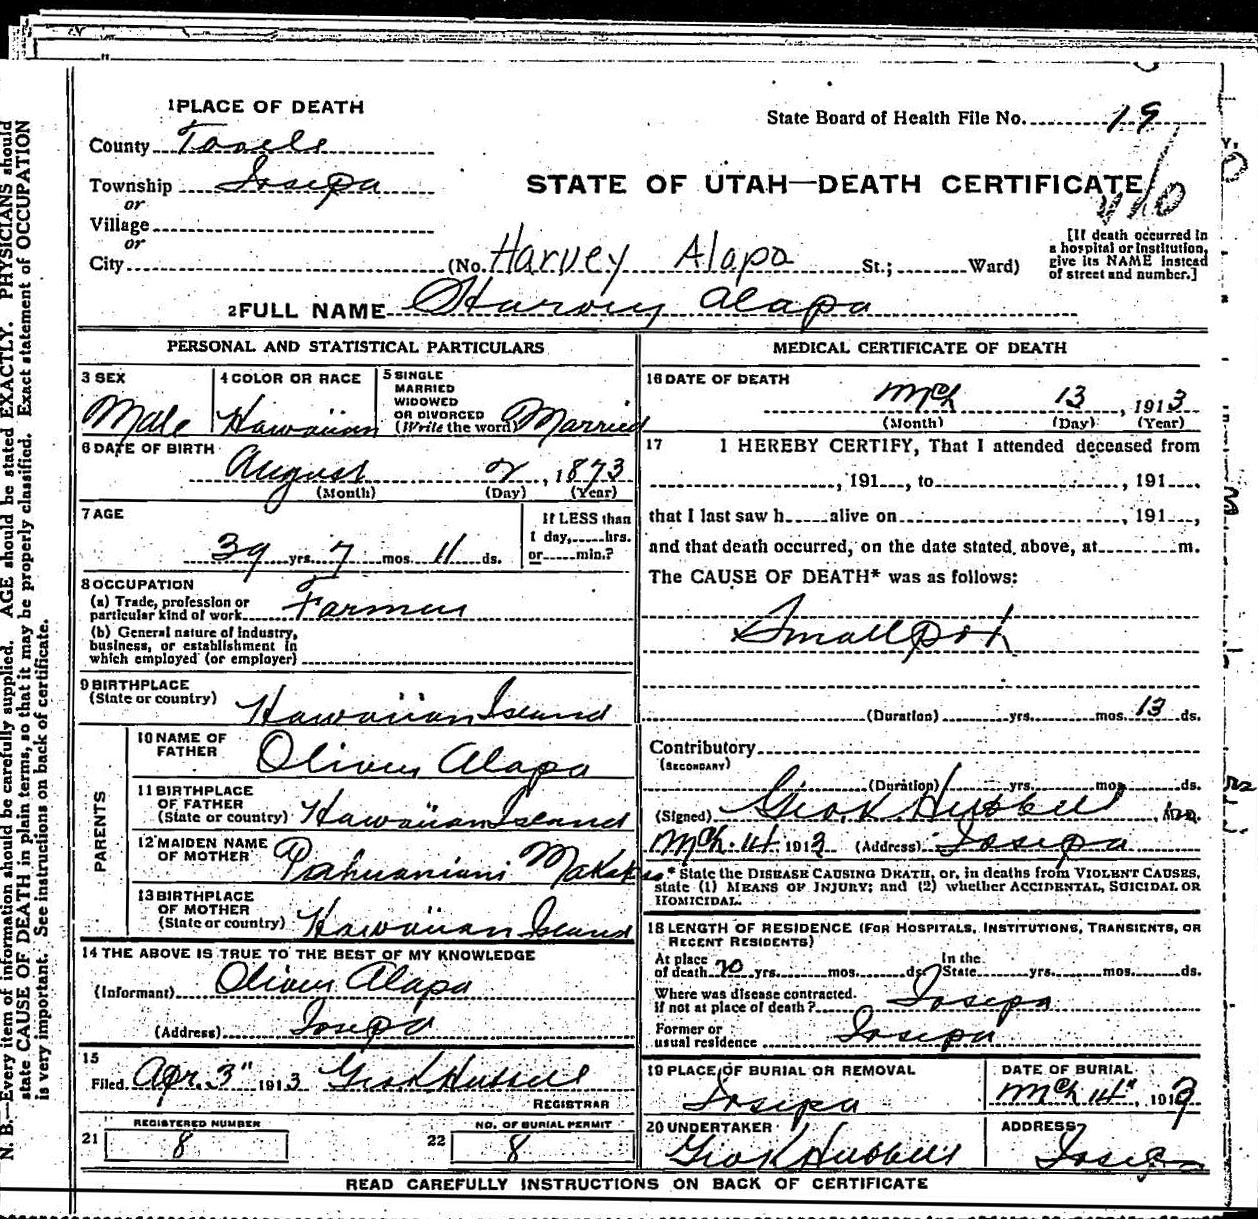 1 PLACE OF DEATH
County Tooele
Township Iosepa
or
Village
or
City (No. Harvey Alapa St.; Ward)
State Board of Health File No. 19
STATE OF UTAH—DEATH CERTIFICATE
[If death occurred in
a hospital or institution,
give its NAME instead
of street and number.]
2 FULL NAME Harvey Alapa
PERSONAL AND STATISTICAL PARTICULARS
3 SEX
Male
4 COLOR OR RACE
Hawaiian
5 SINGLE
MARRIED
WIDOWED
OR DIVORCED
(Write the word) Married
6 DATE OF BIRTH
August 2, 1873
(Month) (Day) (Year)
7 AGE
39 yrs. 7 mos. 11 ds.
If LESS than
1 day, hrs.
or min.?
8 OCCUPATION
(a) Trade, profession or
particular kind of work Farmer
(b) General nature of industry,
business, or establishment in
which employed (or employer)
9 BIRTHPLACE
(State or country) Hawaiian Island
PARENTS
10 NAME OF
FATHER Oliver Alapa
11 BIRTHPLACE
OF FATHER
(State or country) Hawaiian Island
12 MAIDEN NAME
OF MOTHER Pahuaniani
13 BIRTHPLACE
OF MOTHER
(State or country) Hawaiian Island
14 THE ABOVE IS TRUE TO THE BEST OF MY KNOWLEDGE
(Informant) Oliver Alapa
(Address) Iosepa
15
Filed Apr. 3" 1913 Geo K Hubbell
REGISTRAR
REGISTERED NUMBER
21 8
NO. OF BURIAL PERMIT
22 8
MEDICAL CERTIFICATE OF DEATH
16 DATE OF DEATH
Mch 13, 1913
(Month) (Day) (Year)
17 I HEREBY CERTIFY, That I attended deceased from
, 191 , to , 191 ,
that I last saw h alive on , 191 ,
and that death occurred, on the date stated above, at m.
The CAUSE OF DEATH* was as follows:
Smallpox
(Duration) yrs. mos. 13 ds.
Contributory
(SECONDARY)
(Duration) yrs. mos. ds.
(Signed) Geo. K. Hubbell, M.D.
Mch. 14 1913 (Address) Iosepa
* State the DISEASE CAUSING DEATH, or, in deaths from VIOLENT CAUSES,
state (1) MEANS OF INJURY; and (2) whether ACCIDENTAL, SUICIDAL OR
HOMICIDAL.
18 LENGTH OF RESIDENCE (FOR HOSPITALS, INSTITUTIONS, TRANSIENTS, OR
RECENT RESIDENTS)
At place
of death 20 yrs. mos. ds.
In the
State yrs. mos. ds.
Where was disease contracted,
if not at place of death? Iosepa
Former or
usual residence Iosepa
19 PLACE OF BURIAL OR REMOVAL
Iosepa
DATE OF BURIAL
Mch 14", 1913
20 UNDERTAKER
Geo K Hubbell
ADDRESS
Iosepa
READ CAREFULLY INSTRUCTIONS ON BACK OF CERTIFICATE
N. B.—Every item of information should be carefully supplied. AGE should be stated EXACTLY. PHYSICIANS should
state CAUSE OF DEATH in plain terms, so that it may be properly classified. Exact statement of OCCUPATION
is very important. See instructions on back of certificate.